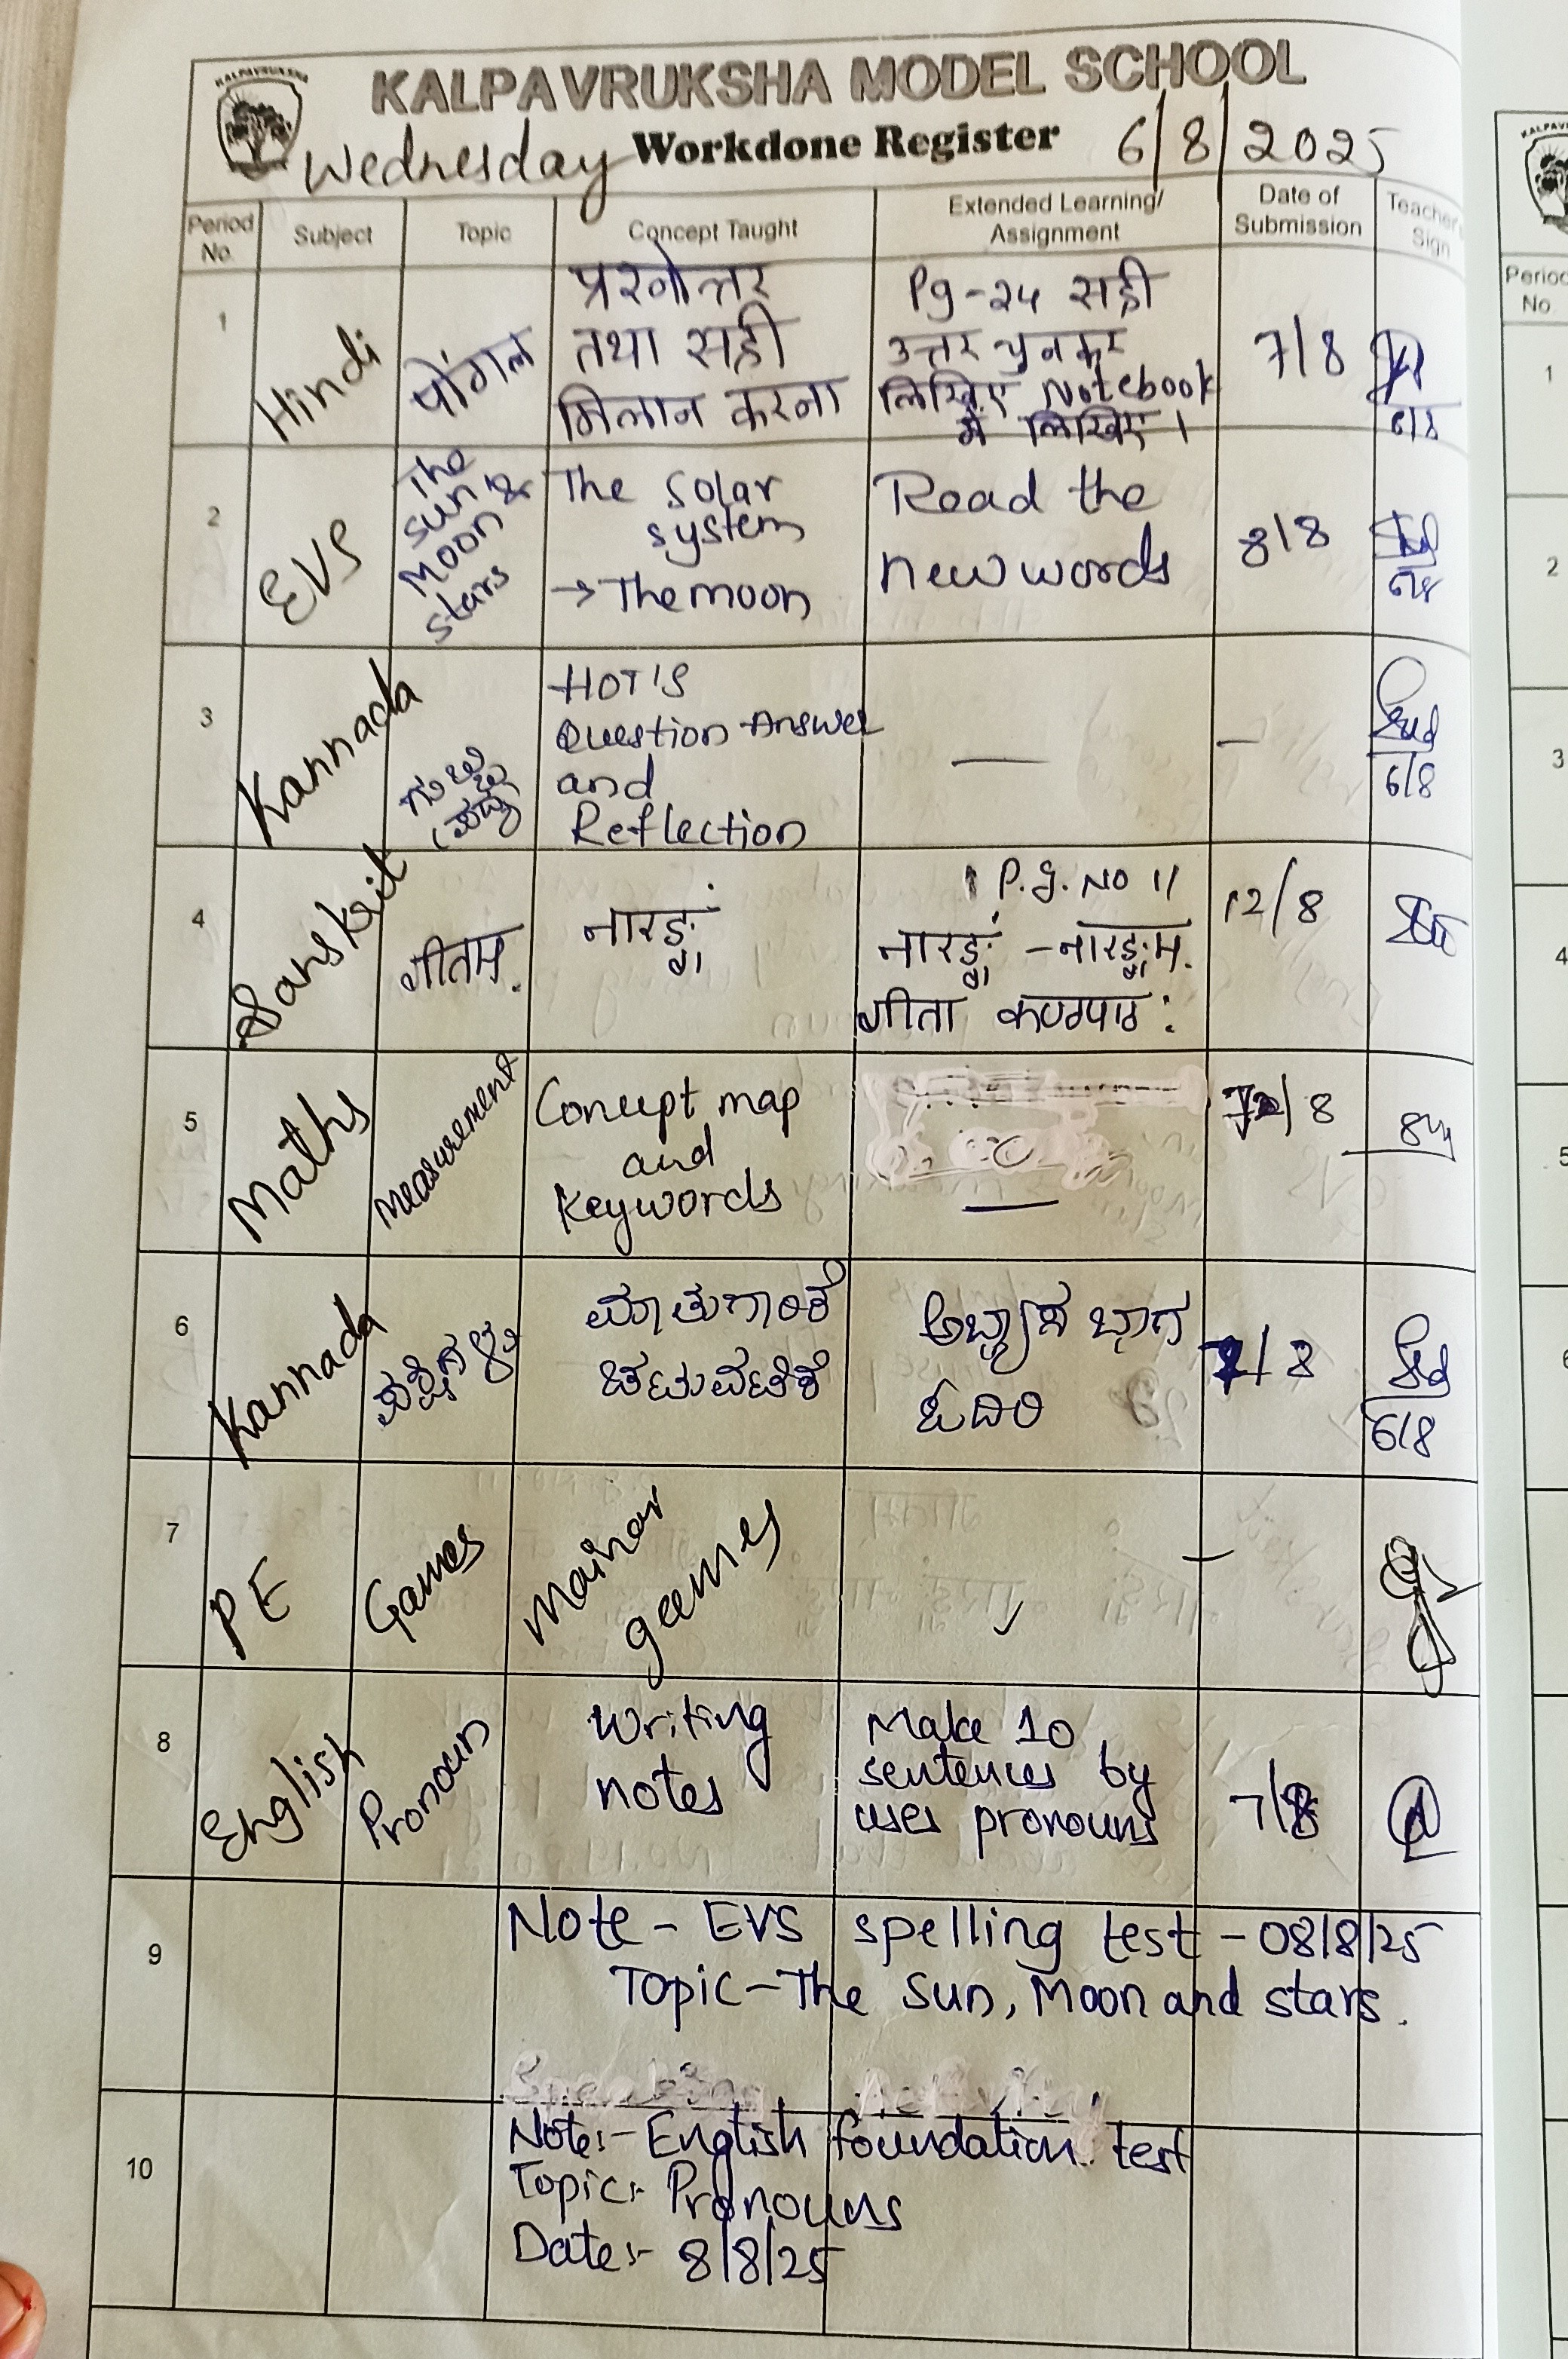 KALPAVRUKSHA
KALPAVRUKSHA MODEL SCHOOL
Wednesday Workdone Register 6/8/2025
Period No. Subject Topic Concept Taught Extended Learning/ Assignment Date of Submission Teacher's Sign
1 Hindi पोंगल प्रश्नोत्तर तथा सही मिलान करना Pg-24 सही उत्तर चुनकर लिखिए Notebook में लिखिए। 7/8
6/8
2 EVS The Sun, Moon & stars The Solar system → The moon Read the new words 8/8
6/8
3 Kannada HOT'S Question Answer and Reflection — —
6/8
4 Sanskrit गीतम्. नारङ्गं P.g. NO 11 नारङ्गं - नारङ्गम्. गीता कण्ठपाठ: 12/8
5 Maths Measurement Concept map and Keywords — /8
6 Kannada ಮಾತುಗಾರಿಕೆ ಚಟುವಟಿಕೆ ಅಭ್ಯಾಸ ಭಾಗ ಓದಿರಿ 7/8
6/8
7 PE Games Mainor geemes ✓ —
8 English Pronoun Writing notes Make 10 sentences by uses pronouns 7/8
9 Note - EVS spelling test - 08/8/25
Topic - The Sun, Moon and stars.
Speaking Activity
10 Note:- English foundation test
Topic:- Pronouns
Date:- 8/8/25
Period No.
1
2
3
4
5
6